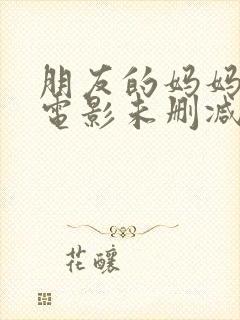 朋友的妈妈
电影未删减
花釀